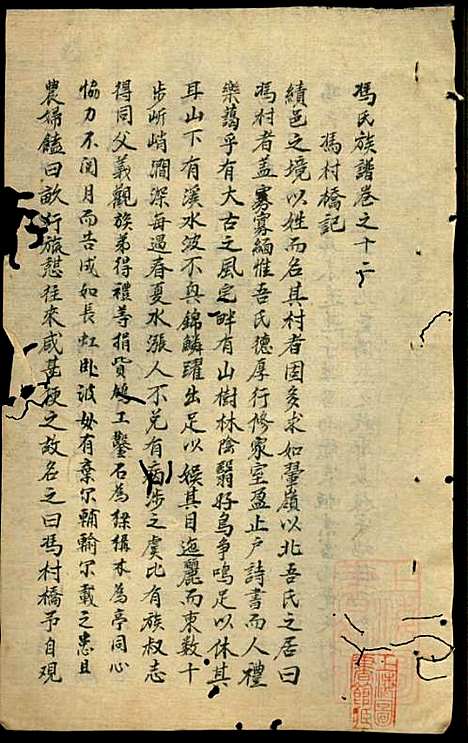 馮氏族譜卷之十二
馮村橋記
績邑之境以姓而名其村者固多求如翬嶺以北吾氏之居曰
馮村者蓋寡寡緬惟吾氏德厚行修家室盈止戶詩書而人禮
樂藹乎有大古之風宅畔有山樹林陰翳好鳥爭鳴足以休其
耳山下有溪水波不興錦鱗躍出足以娛其目迤麗而東數十
步岍峭澗深每遇春夏水漲人不免有病涉之虞比有族叔志
得同父義觀族弟得禮等捐貲鳩工鑿石為樑構木為亭同心
協力不閱月而告成如長虹臥波無有棄爾輔輸爾載之患且
農婦饁曰畝行旅憩往來咸甚便之故名之曰馮村橋予自覌
上海圖書館藏